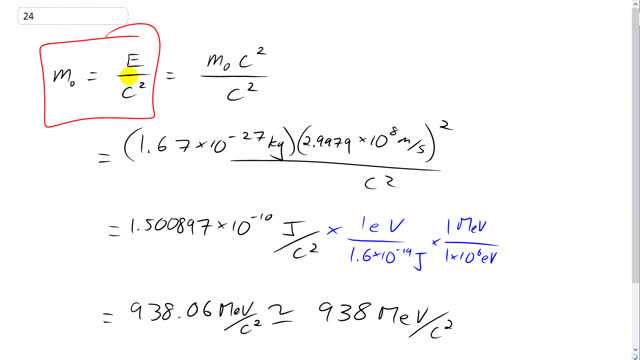 24
m₀ = E/C² = m₀C²/C²
= (1.67×10⁻²⁷kg)(2.9979×10⁸m/s)²/C²
= 1.500897×10⁻¹⁰ J/C² × 1eV/1.6×10⁻¹⁹J × 1MeV/1×10⁶eV
= 938.06MeV/C² ≃ 938MeV/C²